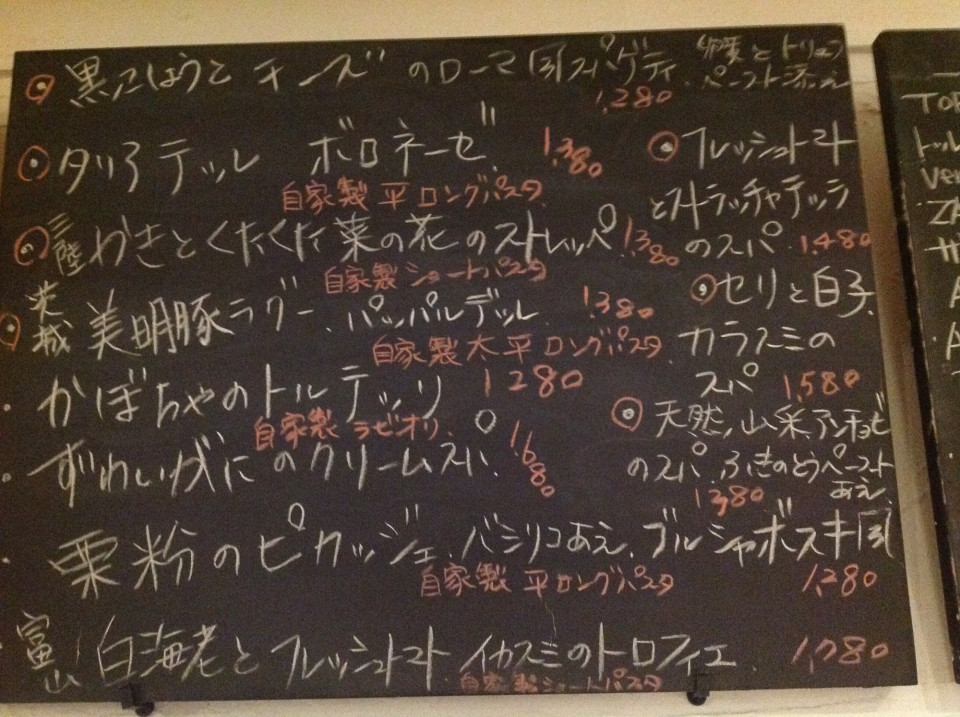 黒こしょうとチーズのローマ風スパゲティ 卵黄とトリュフ
ペースト添え
1,280
タリアテッレ ボロネーゼ 1,380
自家製 平ロングパスタ
三陸 かきとくたくた菜の花のストレッパ 1,380
自家製ショートパスタ
茨城 美明豚ラグー、パッパルデッレ 1,380
自家製太平ロングパスタ
かぼちゃのトルテッリ 1280
自家製ラビオリ
ずわいがにのクリームスパ 1,680
フレッシュトマト
とストラッチャテッラ
のスパ 1,480
セリと白子
カラスミの
スパ 1,580
天然、山菜アンチョビ
のスパ ふきのとうペースト
あえ
1,380
栗粉のピカッジェ、バシリコあえ、ブルシャボスキ風
自家製 平ロングパスタ 1,280
富山 白海老とフレッシュトマト イカスミのトロフィエ 1,780
自家製ショートパスタ
TOR
トル
Ver